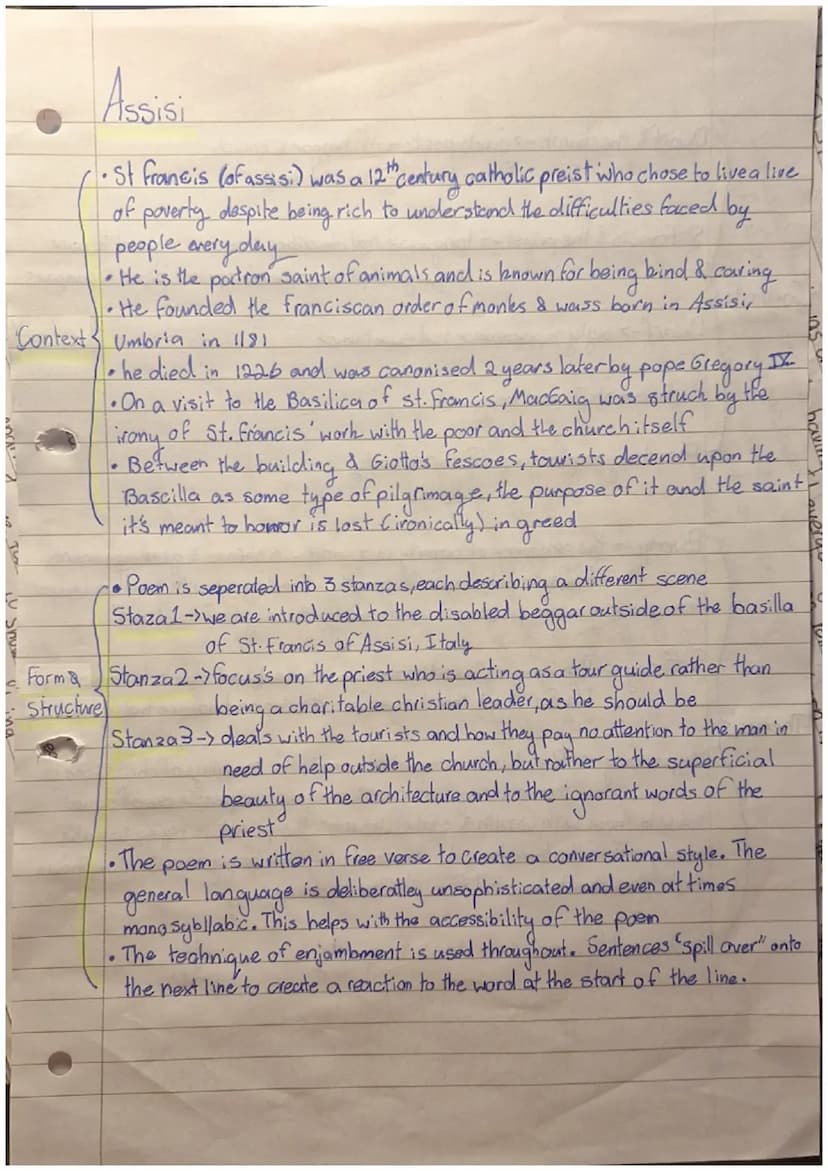 Assisi
• St Francis (of assisi) was a 12th century catholic preist who chose to live a live
of poverty despite being rich to understand the difficulties faced by
people every day
• He is the patron saint of animals and is known for being kind & caring
• He founded the franciscan order of monks & was born in Assisi,
Context
Umbria in 1181
• he died in 1226 and was canonised 2 years later by pope Gregory IX
• On a visit to the Basilica of st. Francis, MacCaig was struck by the
irony of St. Francis' work with the poor and the church itself
• Between the building & Giotto's fescoes, tourists decend upon the
Bascilla as some type of pilgrimage, the purpose of it and the saint
it's meant to honor is lost (ironically) in greed
• Poem is seperated into 3 stanzas, each describing a different scene
Staza 1 -> we are introduced to the disabled beggar outside of the basilla
of St. Francis of Assisi, Italy
Form &
Structure
Stanza 2 -> focus's on the priest who is acting as a tour guide rather than
being a charitable christian leader, as he should be
Stanza 3 -> deals with the tourists and how they pay no attention to the man in
need of help outside the church, but rather to the superficial
beauty of the architecture and to the ignorant words of the
priest
• The poem is written in free verse to create a conversational style. The
general language is deliberatley unsophisticated and even at times
monosybllabic. This helps with the accessibility of the poem
• The technique of enjambment is used throughout. Sentences "spill over" onto
the next line to create a reaction to the word at the start of the line.